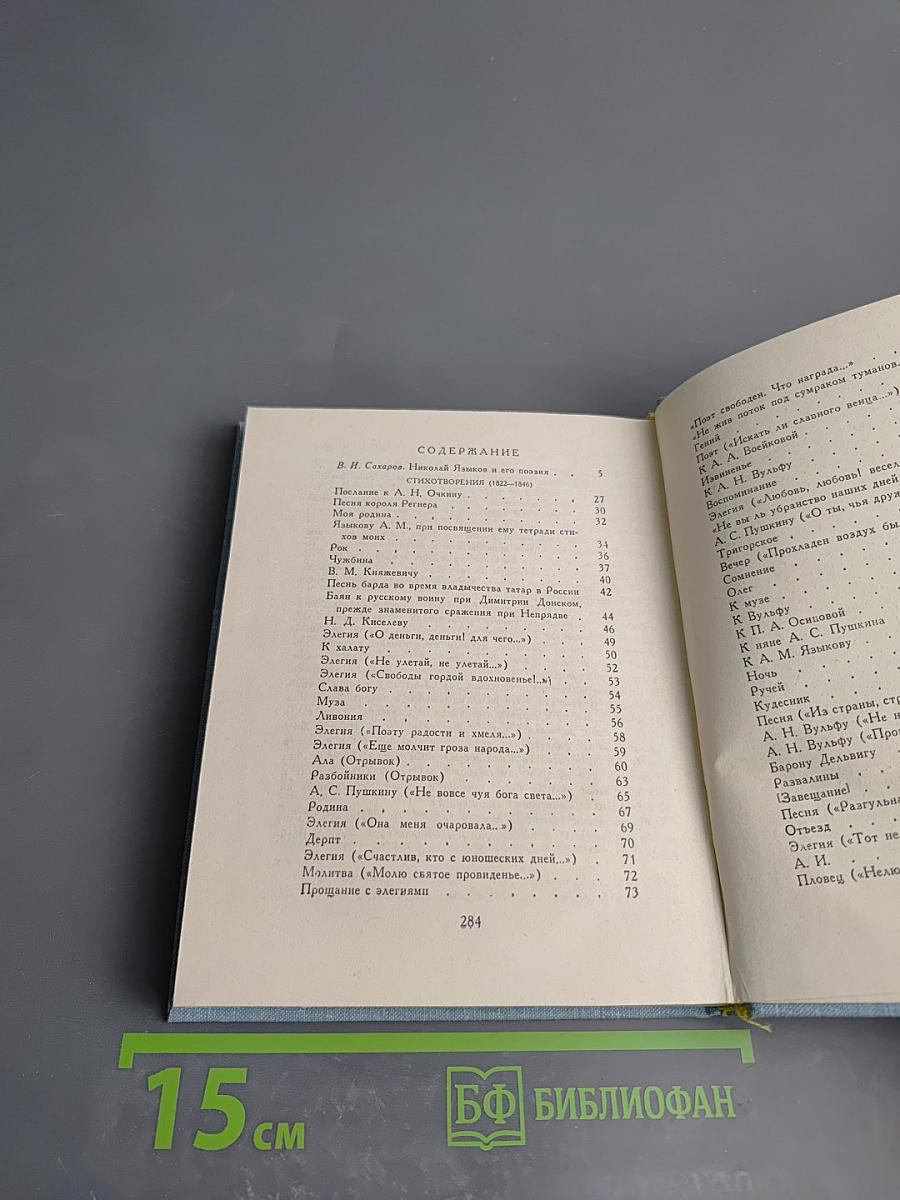 СОДЕРЖАНИЕ
В. И. Сахаров. Николай Языков и его поэзия . . 5
СТИХОТВОРЕНИЯ (1822—1846)
Послание к А. Н. Очкину . . . . . . . 27
Песня короля Регнера . . . . . . . . 30
Моя родина . . . . . . . . . . 32
Языкову А. М., при посвящении ему тетради сти-
хов моих . . . . . . . . . . 34
Рок . . . . . . . . . . . . 36
Чужбина . . . . . . . . . . . 37
В. М. Княжевичу . . . . . . . . . 40
Песнь барда во время владычества татар в России 42
Баян к русскому воину при Димитрии Донском,
прежде знаменитого сражения при Непрядве . 44
Н. Д. Киселеву . . . . . . . . . 46
Элегия («О деньги, деньги! для чего...») . . . 49
К халату . . . . . . . . . . . 50
Элегия («Не улетай, не улетай...») . . . . 52
Элегия («Свободы гордой вдохновенье!..») . . . 53
Слава богу . . . . . . . . . . 54
Муза . . . . . . . . . . . 55
Ливония . . . . . . . . . . . 56
Элегия («Поэту радости и хмеля...») . . . . 58
Элегия («Еще молчит гроза народа...») . . . 59
Ала (Отрывок) . . . . . . . . . 60
Разбойники (Отрывок) . . . . . . . 63
А. С. Пушкину («Не вовсе чуя бога света...») . 65
Родина . . . . . . . . . . . 67
Элегия («Она меня очаровала..») . . . . 69
Дерпт . . . . . . . . . . . 70
Элегия («Счастлив, кто с юношеских дней...») . 71
Молитва («Молю святое провиденье...») . . . 72
Прощание с элегиями . . . . . . . 73
284
«Поэт свободен. Что награда...» . .
«Не жив поток под сумраком туманов.
Гений . . . . .
Поэт («Искать ли славного венца...»)
К А. А. Воейковой . . .
Извиненье . . . .
К А. Н. Вульфу . . .
Воспоминание . . . .
Элегия («Любовь, любовь! весел
«Не вы ль убранство наших дней
А. С. Пушкину («О ты, чья друж
Тригорское . . . .
Вечер («Прохладен воздух бы
Сомнение . . .
Олег . . . .
К музе . . . .
К Вульфу . . .
К П. А. Осиповой . .
К няне А. С. Пушкина
К А. М. Языкову .
Ночь . . . .
Ручей . . . .
Кудесник . . .
Песня («Из страны, стр
А. Н. Вульфу («Не н
А. Н. Вульфу («Про
Барону Дельвигу .
Развалины . .
[Завещание] . .
Песня («Разгульна
Отъезд . . .
Элегия («Тот не
А. И. . . .
Пловец («Нелю
15 см
БФ БИБЛИОФАН